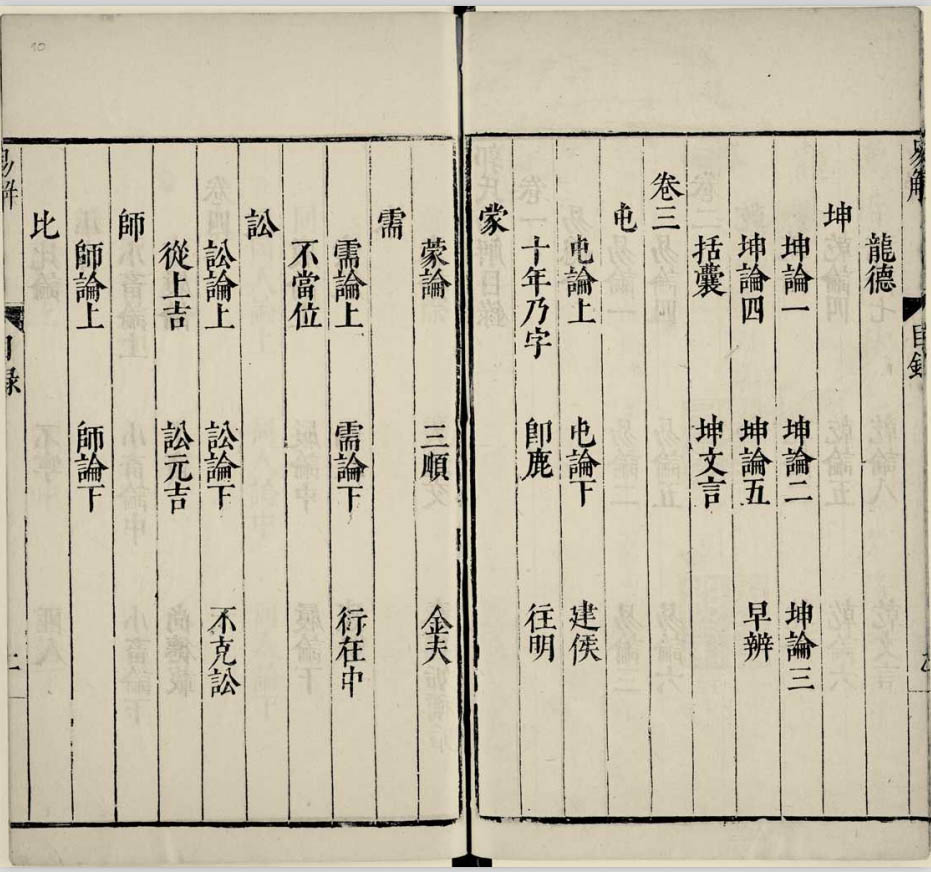 龍德
坤
坤論一 坤論二 坤論三
坤論四 坤論五 早辨
括囊 坤文言
卷三
屯
屯論上 屯論下 建侯
十年乃字 卽鹿 往明
蒙
蒙論 三順 金夫
需
需論上 需論下 衍在中
不當位
訟
訟論上 訟論下 不克訟
從上吉 訟元吉
師
師論上 師論下
比
易解 目録